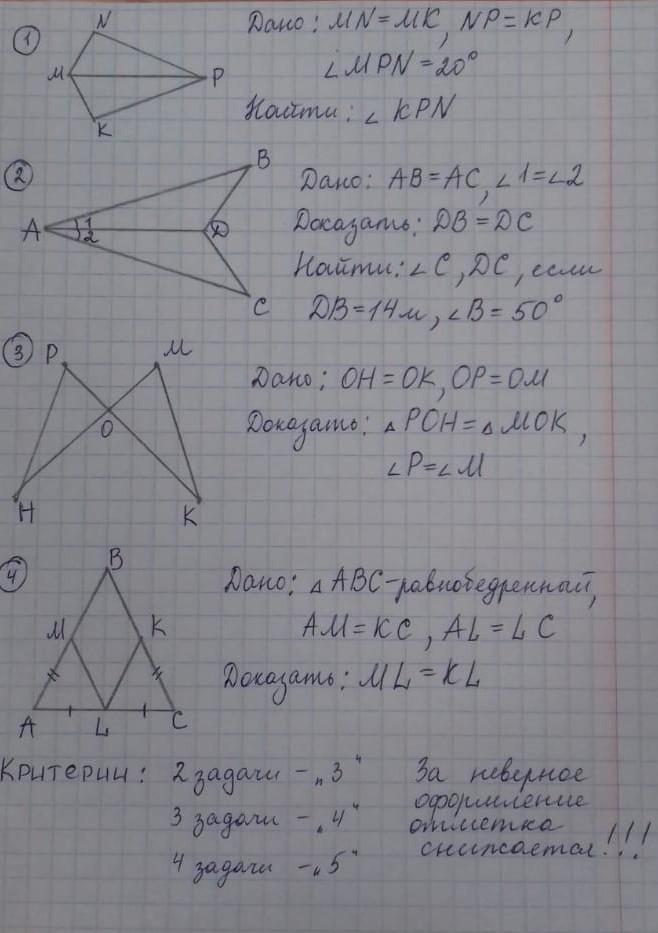 ① N M P K
Дано: MN = MK, NP = KP,
∠MPN = 20°
Найти: ∠ KPN
② A 1 2 B D C
Дано: AB = AC, ∠1 = ∠2
Доказать: DB = DC
Найти: ∠C, DC, если
DB = 14м, ∠B = 50°
③ P M O H K
Дано: OH = OK, OP = OM
Доказать: △POH = △MOK,
∠P = ∠M
④ B M K A L C
Дано: △ABC - равнобедренный,
AM = KC, AL = LC
Доказать: ML = KL
Критерии: 2 задачи - „3“
3 задачи - „4“
4 задачи - „5“
За неверное
оформление
отметка
снижается!!!